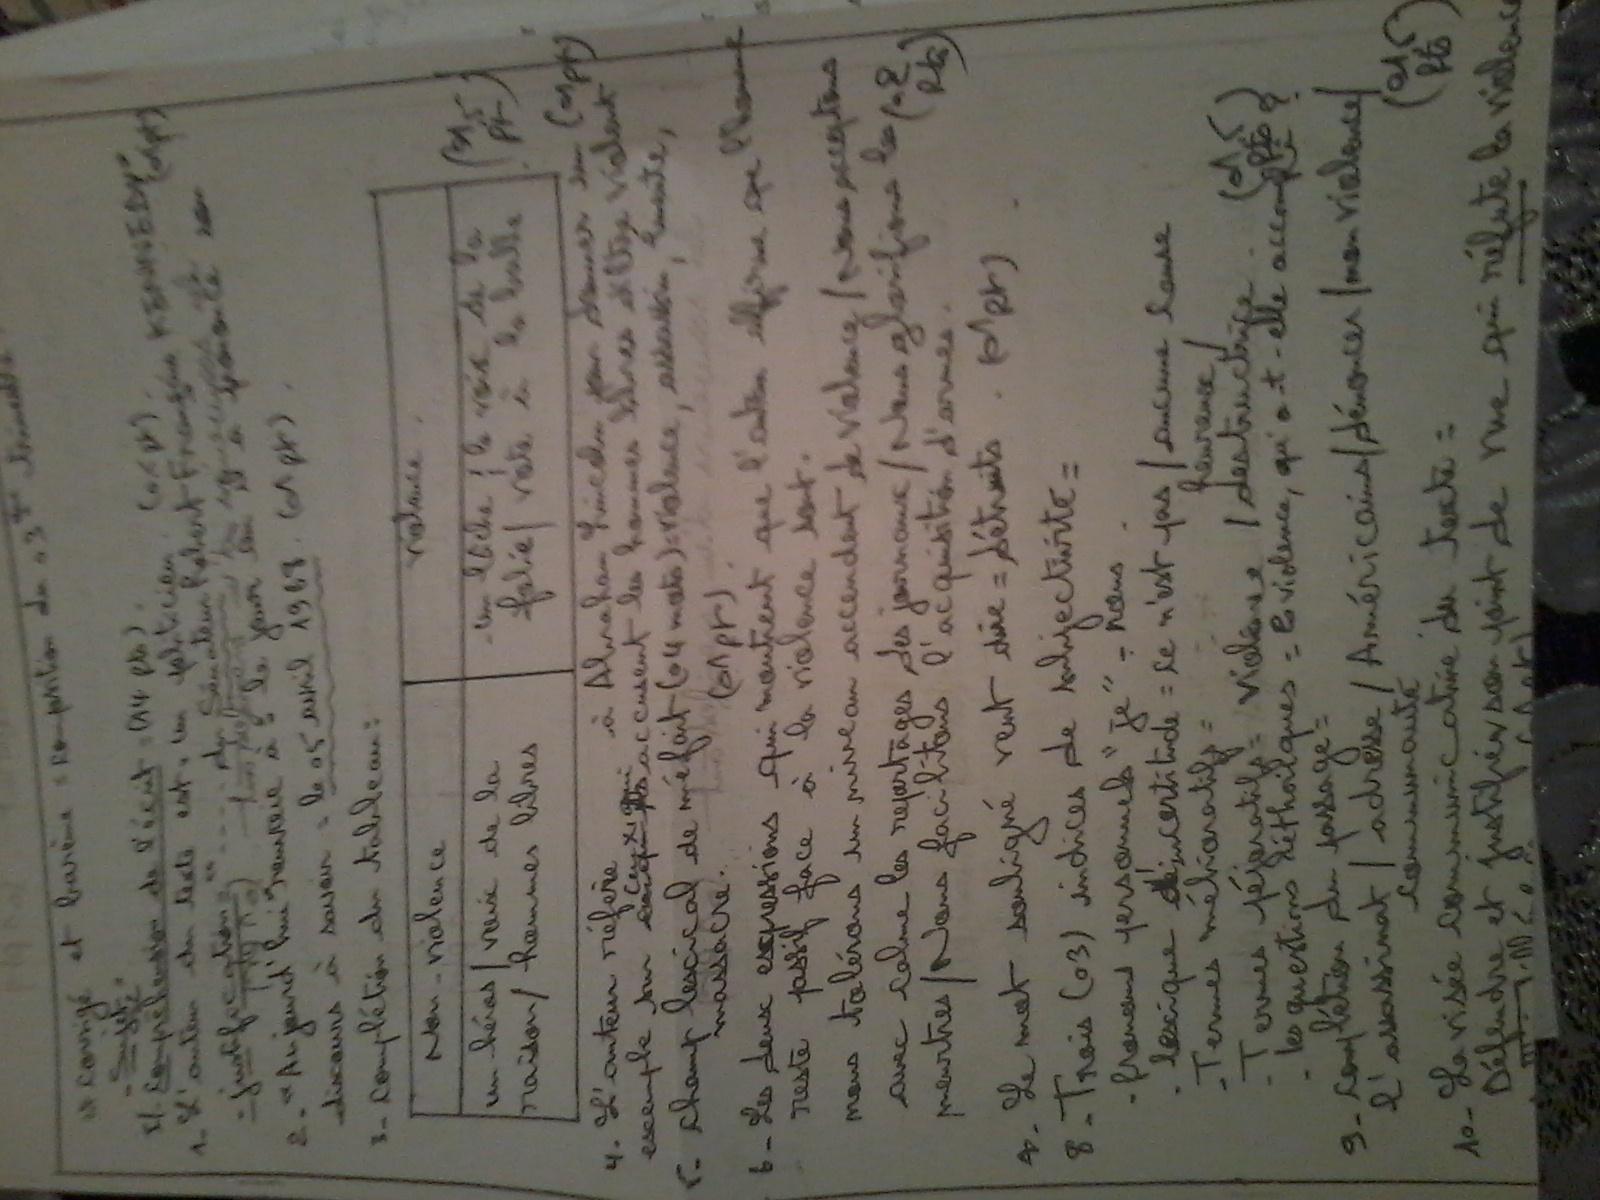 Corrigé et barème : composition du 03ème trimestre
- Sujet :
I/ Compréhension de l'écrit : (14 pts)
1- L'auteur du texte est : un politicien. (0,5 pt).
- justification : "..... du Sénateur Robert François KENNEDY" (01 pt)
2- "Aujourd'hui" renvoie à : le jour où il a prononcé son
discours à savoir : le 05 avril 1968. (01 pt).
3- Complétion du tableau :
Non-violence
violence.
un héros / voix de la
raison / hommes libres
- un lâche / la voix de la
folie / vote à la balle
(01,5 pt)
4- L'auteur réfère à Abraham Lincoln pour donner un (01 pt)
exemple sur ceux qui accusent les hommes libres d'être violent
5- Champ lexical de méfait (04 mots) : violence, assassin, émeute,
massacre. (01 pt).
6- Les deux expressions qui montrent que l'auteur affirme que l'homme
reste passif face à la violence sont.
nous tolérons un niveau accendent de violence / Nous acceptons
avec calme les reportages des journaux / Nous glorifions les (02 pts)
meurtres / Nous facilitons l'acquisition d'armes.
7- Le mot souligné veut dire = détruits. (01 pt)
8- Trois (03) indices de subjectivité =
- Pronoms personnels "je" - nous.
- lexique d'incertitude = ce n'est pas / aucune cause
- Termes mélioratifs = heureuse /
- Termes péjoratifs = violence / destructrice. (01,5 pts)
- les questions réthoriques = la violence, qu'a-t-elle accompli ?
9- Complétion du passage =
l'assassinat / adresse / Américains / dénoncer / non violence /
communauté (01,5 pts)
10- La visée communicative du texte =
Défendre et justifier son point de vue qui réfute la violence